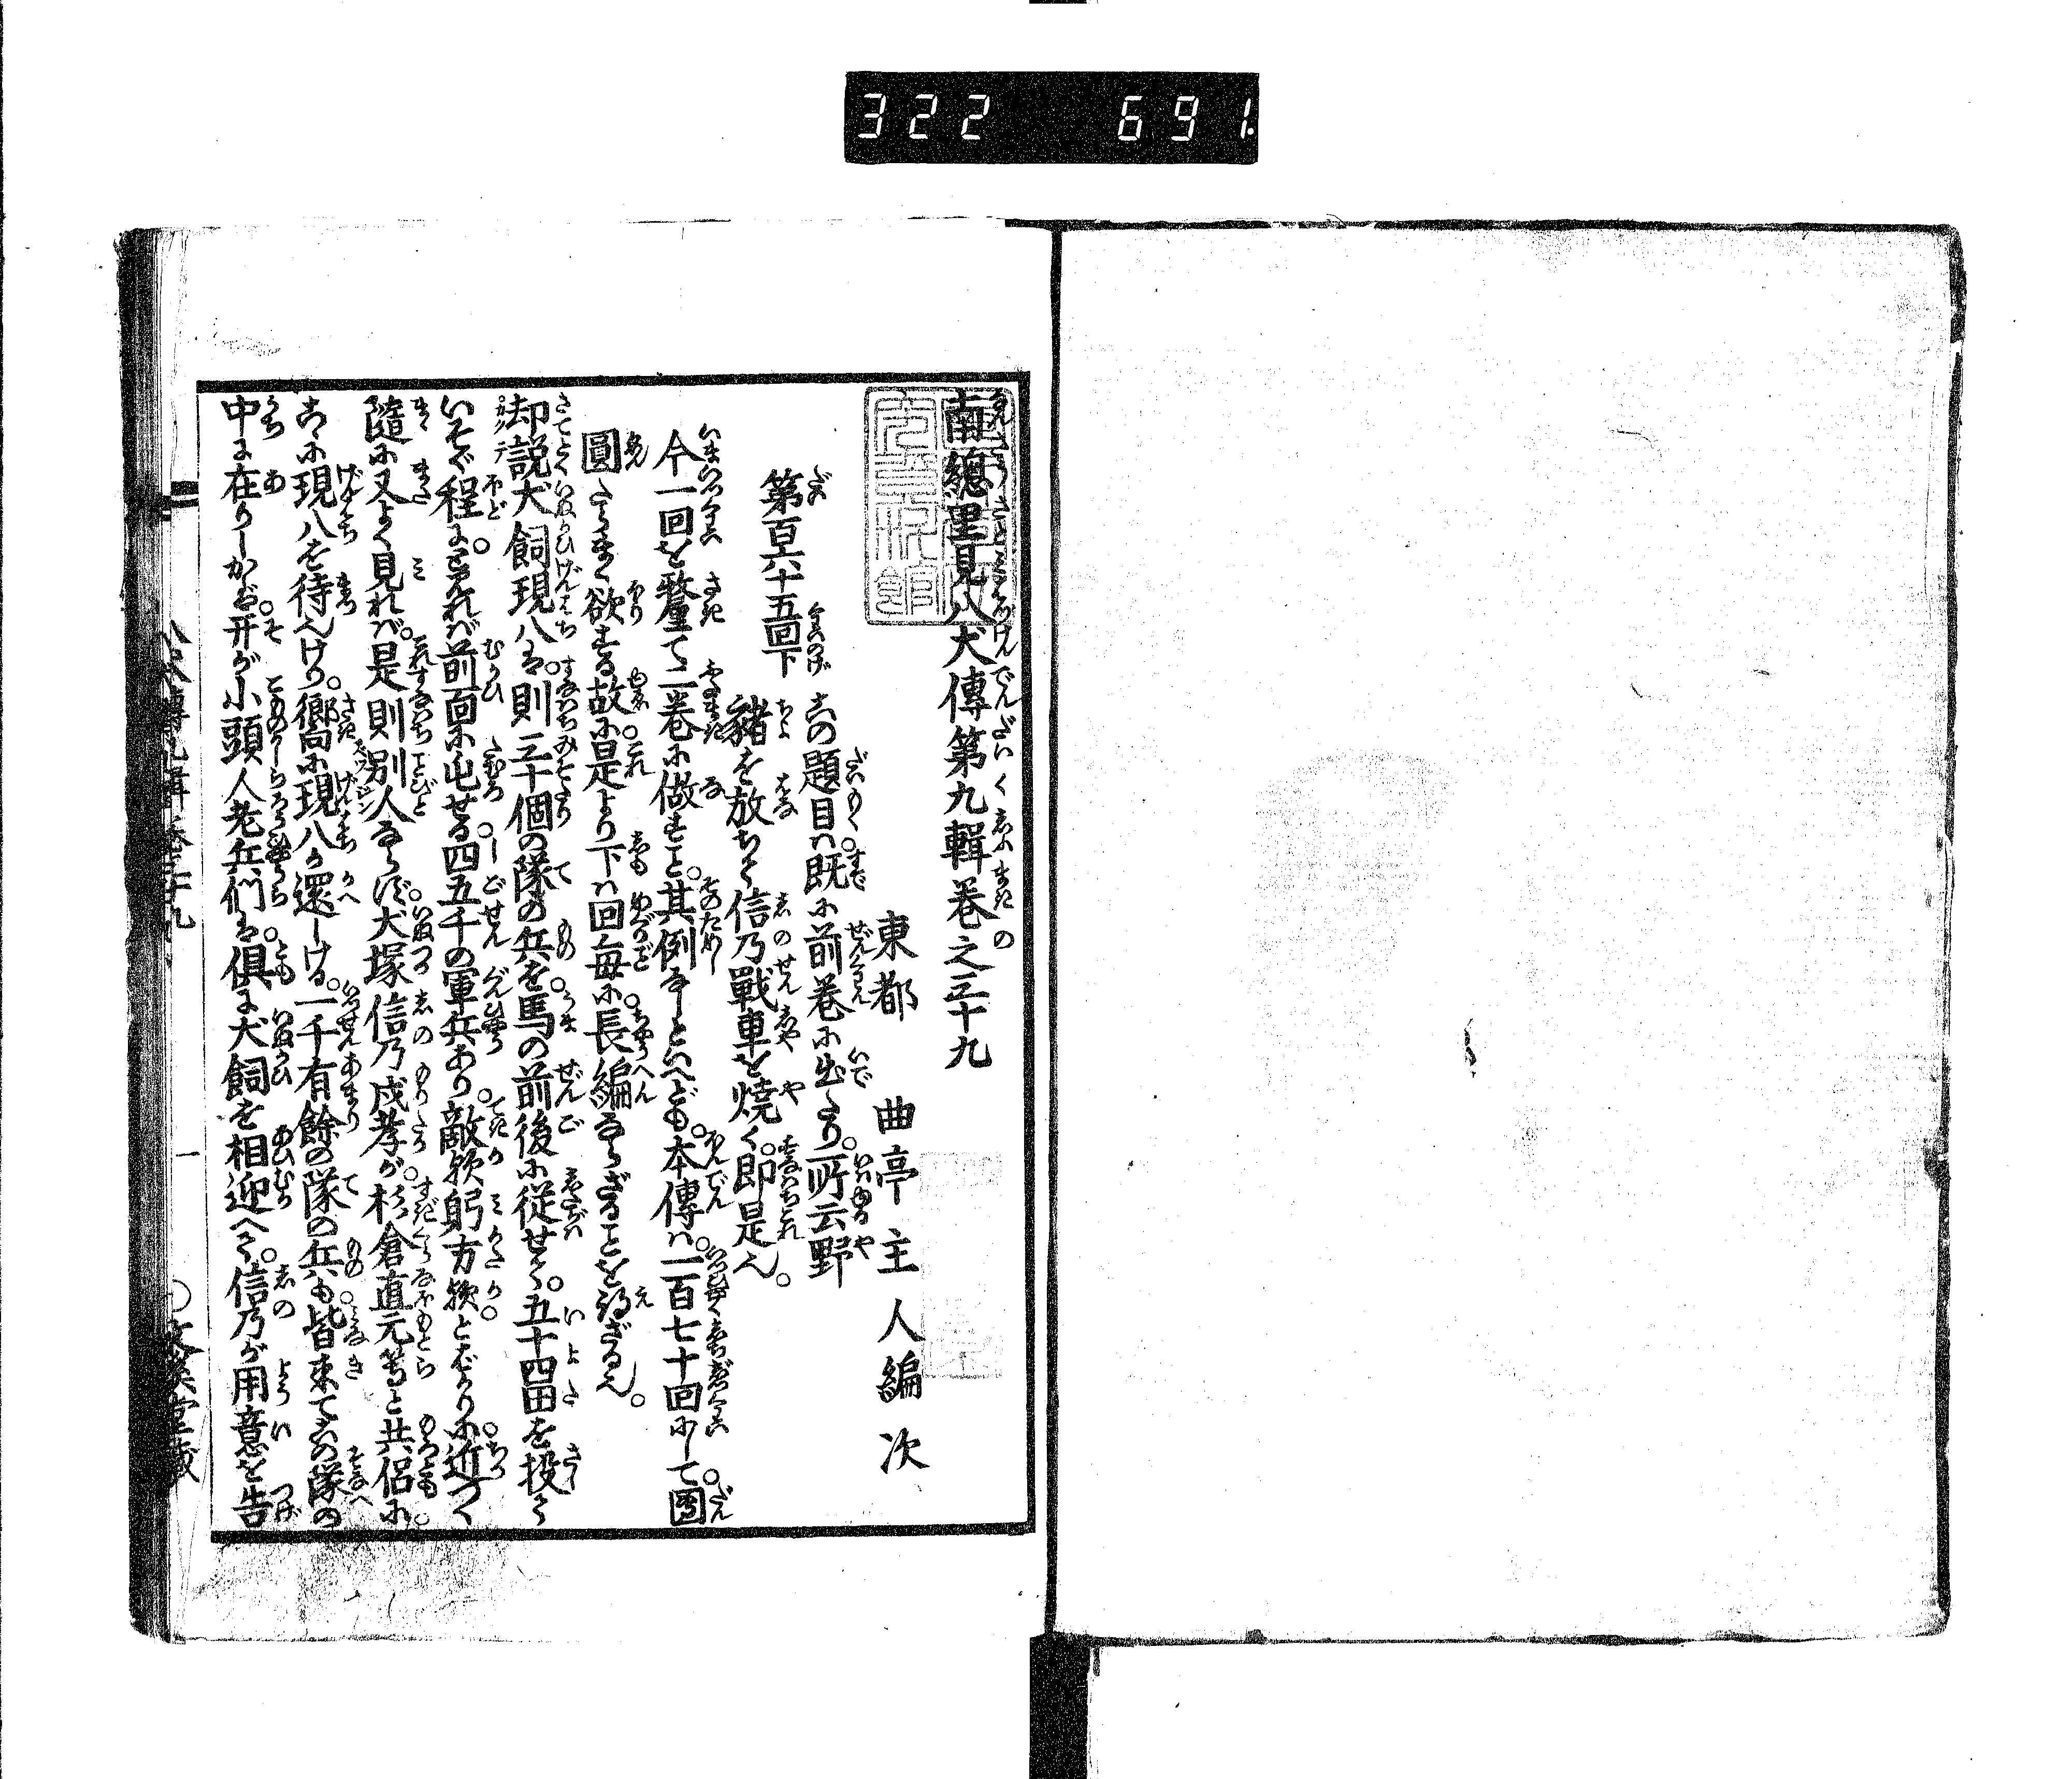 322 691
南總里見八犬傳第九輯巻之三十九
東都 曲亭主人編次
第百六十五回下
この題目は既に前巻に出たり。所云野
猪を放ちて信乃戰車を焼く。即是也。
今一回を釐て二巻に做すこと。其例なしといへども。本傳は。一百七十回にして團
圓たらまく欲する故に。是より下は回毎に。長編ならざることを得ざる也。
却説犬飼現八は。則三十個の隊の兵を。馬の前後に従せて。五十四田を投て
いそぐ程に。と見れば前面に屯せる。四五千の軍兵あり。敵歟躬方歟。とばかりに。近づく
隨に又よく見れば。是則別人ならず。犬塚信乃戍孝が。杉倉直元等と共侶に。
こゝに現八を待へけり。嚮に現八が還しける。一千有餘の隊の兵も。皆來てこの隊の
中に在りしかば。开が小頭人老兵們は。倶に犬飼を相迎へて。信乃が用意を告
八犬傳九輯 巻三十九
一
文溪堂藏